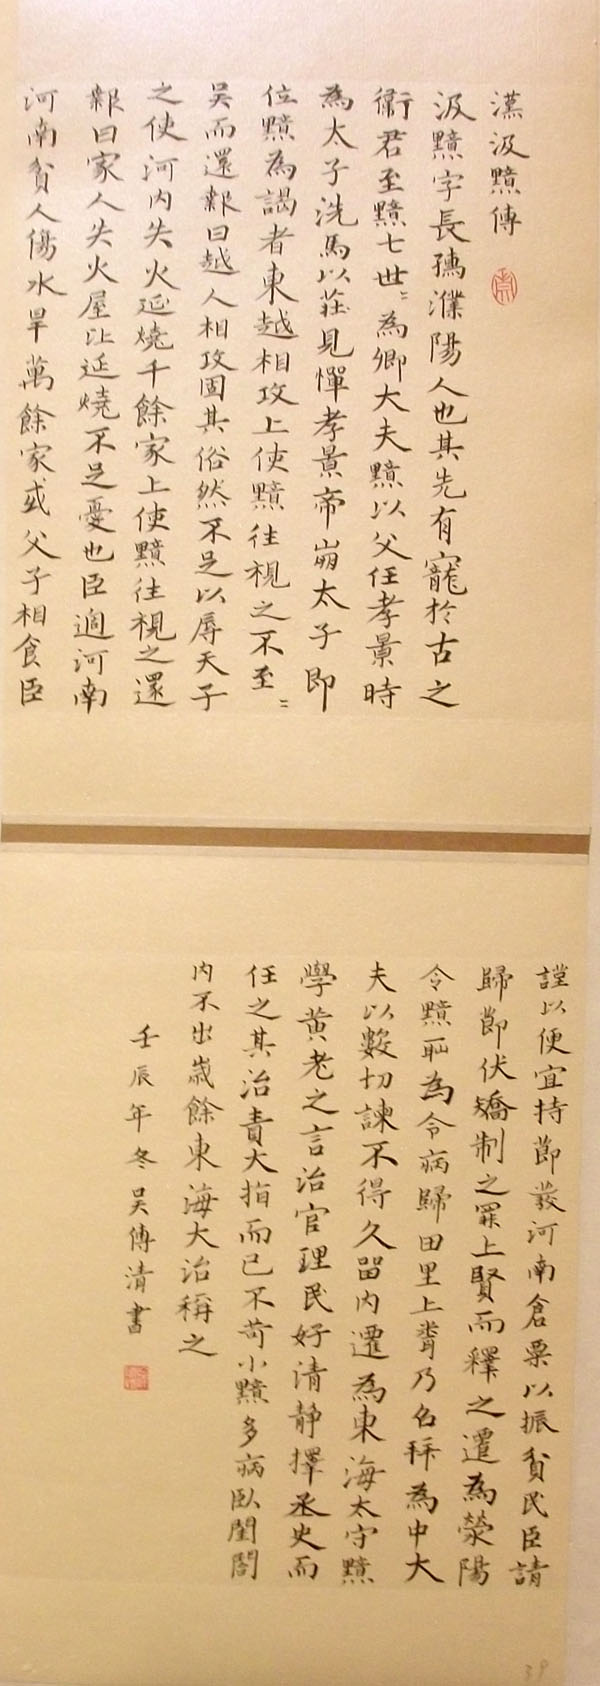 漢汲黯傳
汲黯字長孺濮陽人也其先有寵於古之
衛君至黯七世〻為卿大夫黯以父任孝景時
為太子洗馬以莊見憚孝景帝崩太子即
位黯為謁者東越相攻上使黯往視之不至〻
吳而還報曰越人相攻固其俗然不足以辱天子
之使河內失火延燒千餘家上使黯往視之還
報曰家人失火屋比延燒不足憂也臣過河南
河南貧人傷水旱萬餘家或父子相食臣
謹以便宜持節發河南倉粟以振貧民臣請
歸節伏矯制之罪上賢而釋之遷為滎陽
令黯恥為令病歸田里上聞乃召拜為中大
夫以數切諫不得久留內遷為東海太守黯
學黃老之言治官理民好清靜擇丞史而
任之其治責大指而已不苛小黯多病臥閨閤
內不出歲餘東海大治稱之
壬辰年冬吳傳清書
39